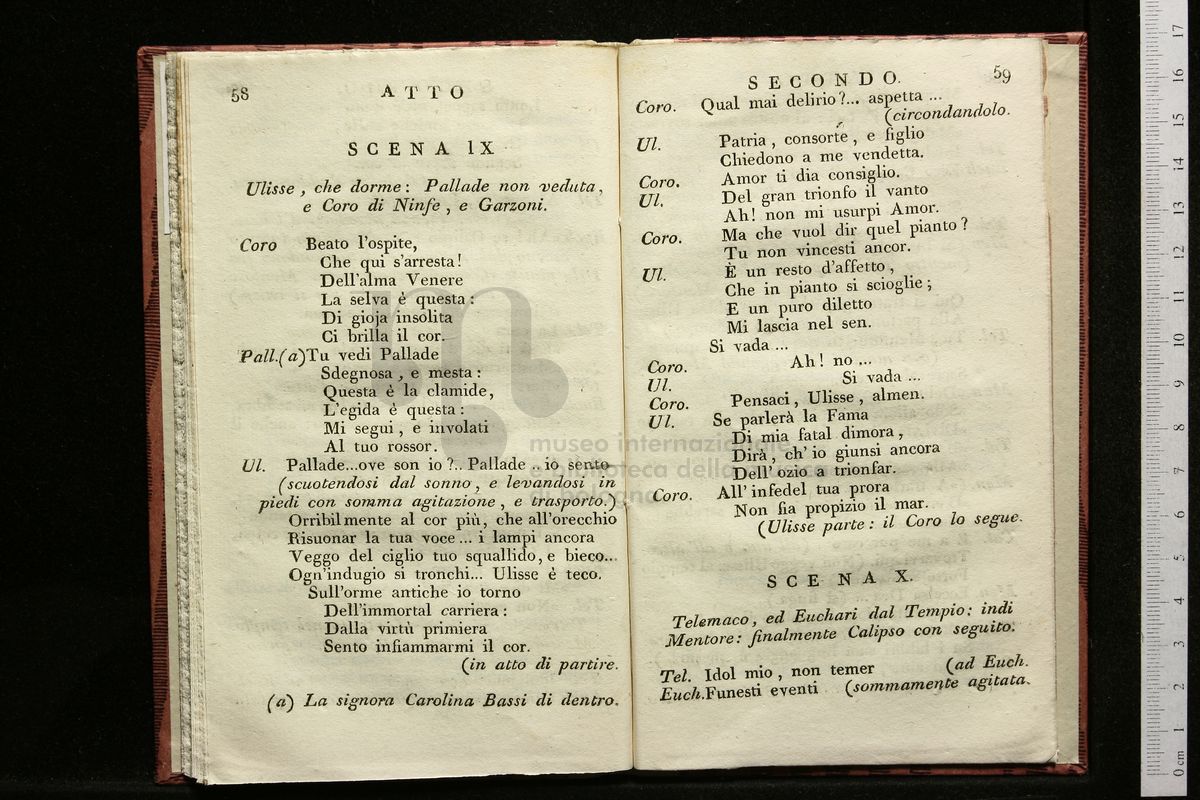 58
ATTO
SCENA IX
Ulisse, che dorme: Pallade non veduta,
e Coro di Ninfe, e Garzoni.
Coro Beato l'ospite,
Che qui s'arresta!
Dell'alma Venere
La selva è questa:
Di gioja insolita
Ci brilla il cor.
Pall.(a) Tu vedi Pallade
Sdegnosa, e mesta:
Questa è la clamide,
L'egida è questa:
Mi segui, e involati
Al tuo rossor.
Ul. Pallade...ove son io?.. Pallade .. io sento
(scuotendosi dal sonno, e levandosi in
piedi con somma agitazione, e trasporto.)
Orribilmente al cor più, che all'orecchio
Risuonar la tua voce... i lampi ancora
Veggo del ciglio tuo squallido, e bieco...
Ogn'indugio si tronchi... Ulisse è teco.
Sull'orme antiche io torno
Dell'immortal carriera:
Dalla virtù primiera
Sento infiammarmi il cor.
(in atto di partire.
(a) La signora Carolina Bassi di dentro.
SECONDO.
59
Coro. Qual mai delirio?... aspetta ...
(circondandolo.
Ul. Patria, consorte, e figlio
Chiedono a me vendetta.
Coro. Amor ti dia consiglio.
Ul. Del gran trionfo il vanto
Ah! non mi usurpi Amor.
Coro. Ma che vuol dir quel pianto?
Tu non vincesti ancor.
Ul. È un resto d'affetto,
Che in pianto si scioglie;
E un puro diletto
Mi lascia nel sen.
Si vada ...
Coro. Ah! no ...
Ul. Si vada ...
Coro. Pensaci, Ulisse, almen.
Ul. Se parlerà la Fama
Di mia fatal dimora,
Dirà, ch'io giunsi ancora
Dell'ozio a trionfar.
Coro. All'infedel tua prora
Non fia propizio il mar.
(Ulisse parte: il Coro lo segue.
SCENA X.
Telemaco, ed Euchari dal Tempio: indi
Mentore: finalmente Calipso con seguito.
Tel. Idol mio, non temer (ad Euch.
Euch. Funesti eventi (sommamente agitata.
museo internazionale
e biblioteca della
di bologna
0 cm 1 2 3 4 5 6 7 8 9 10 11 12 13 14 15 16 17